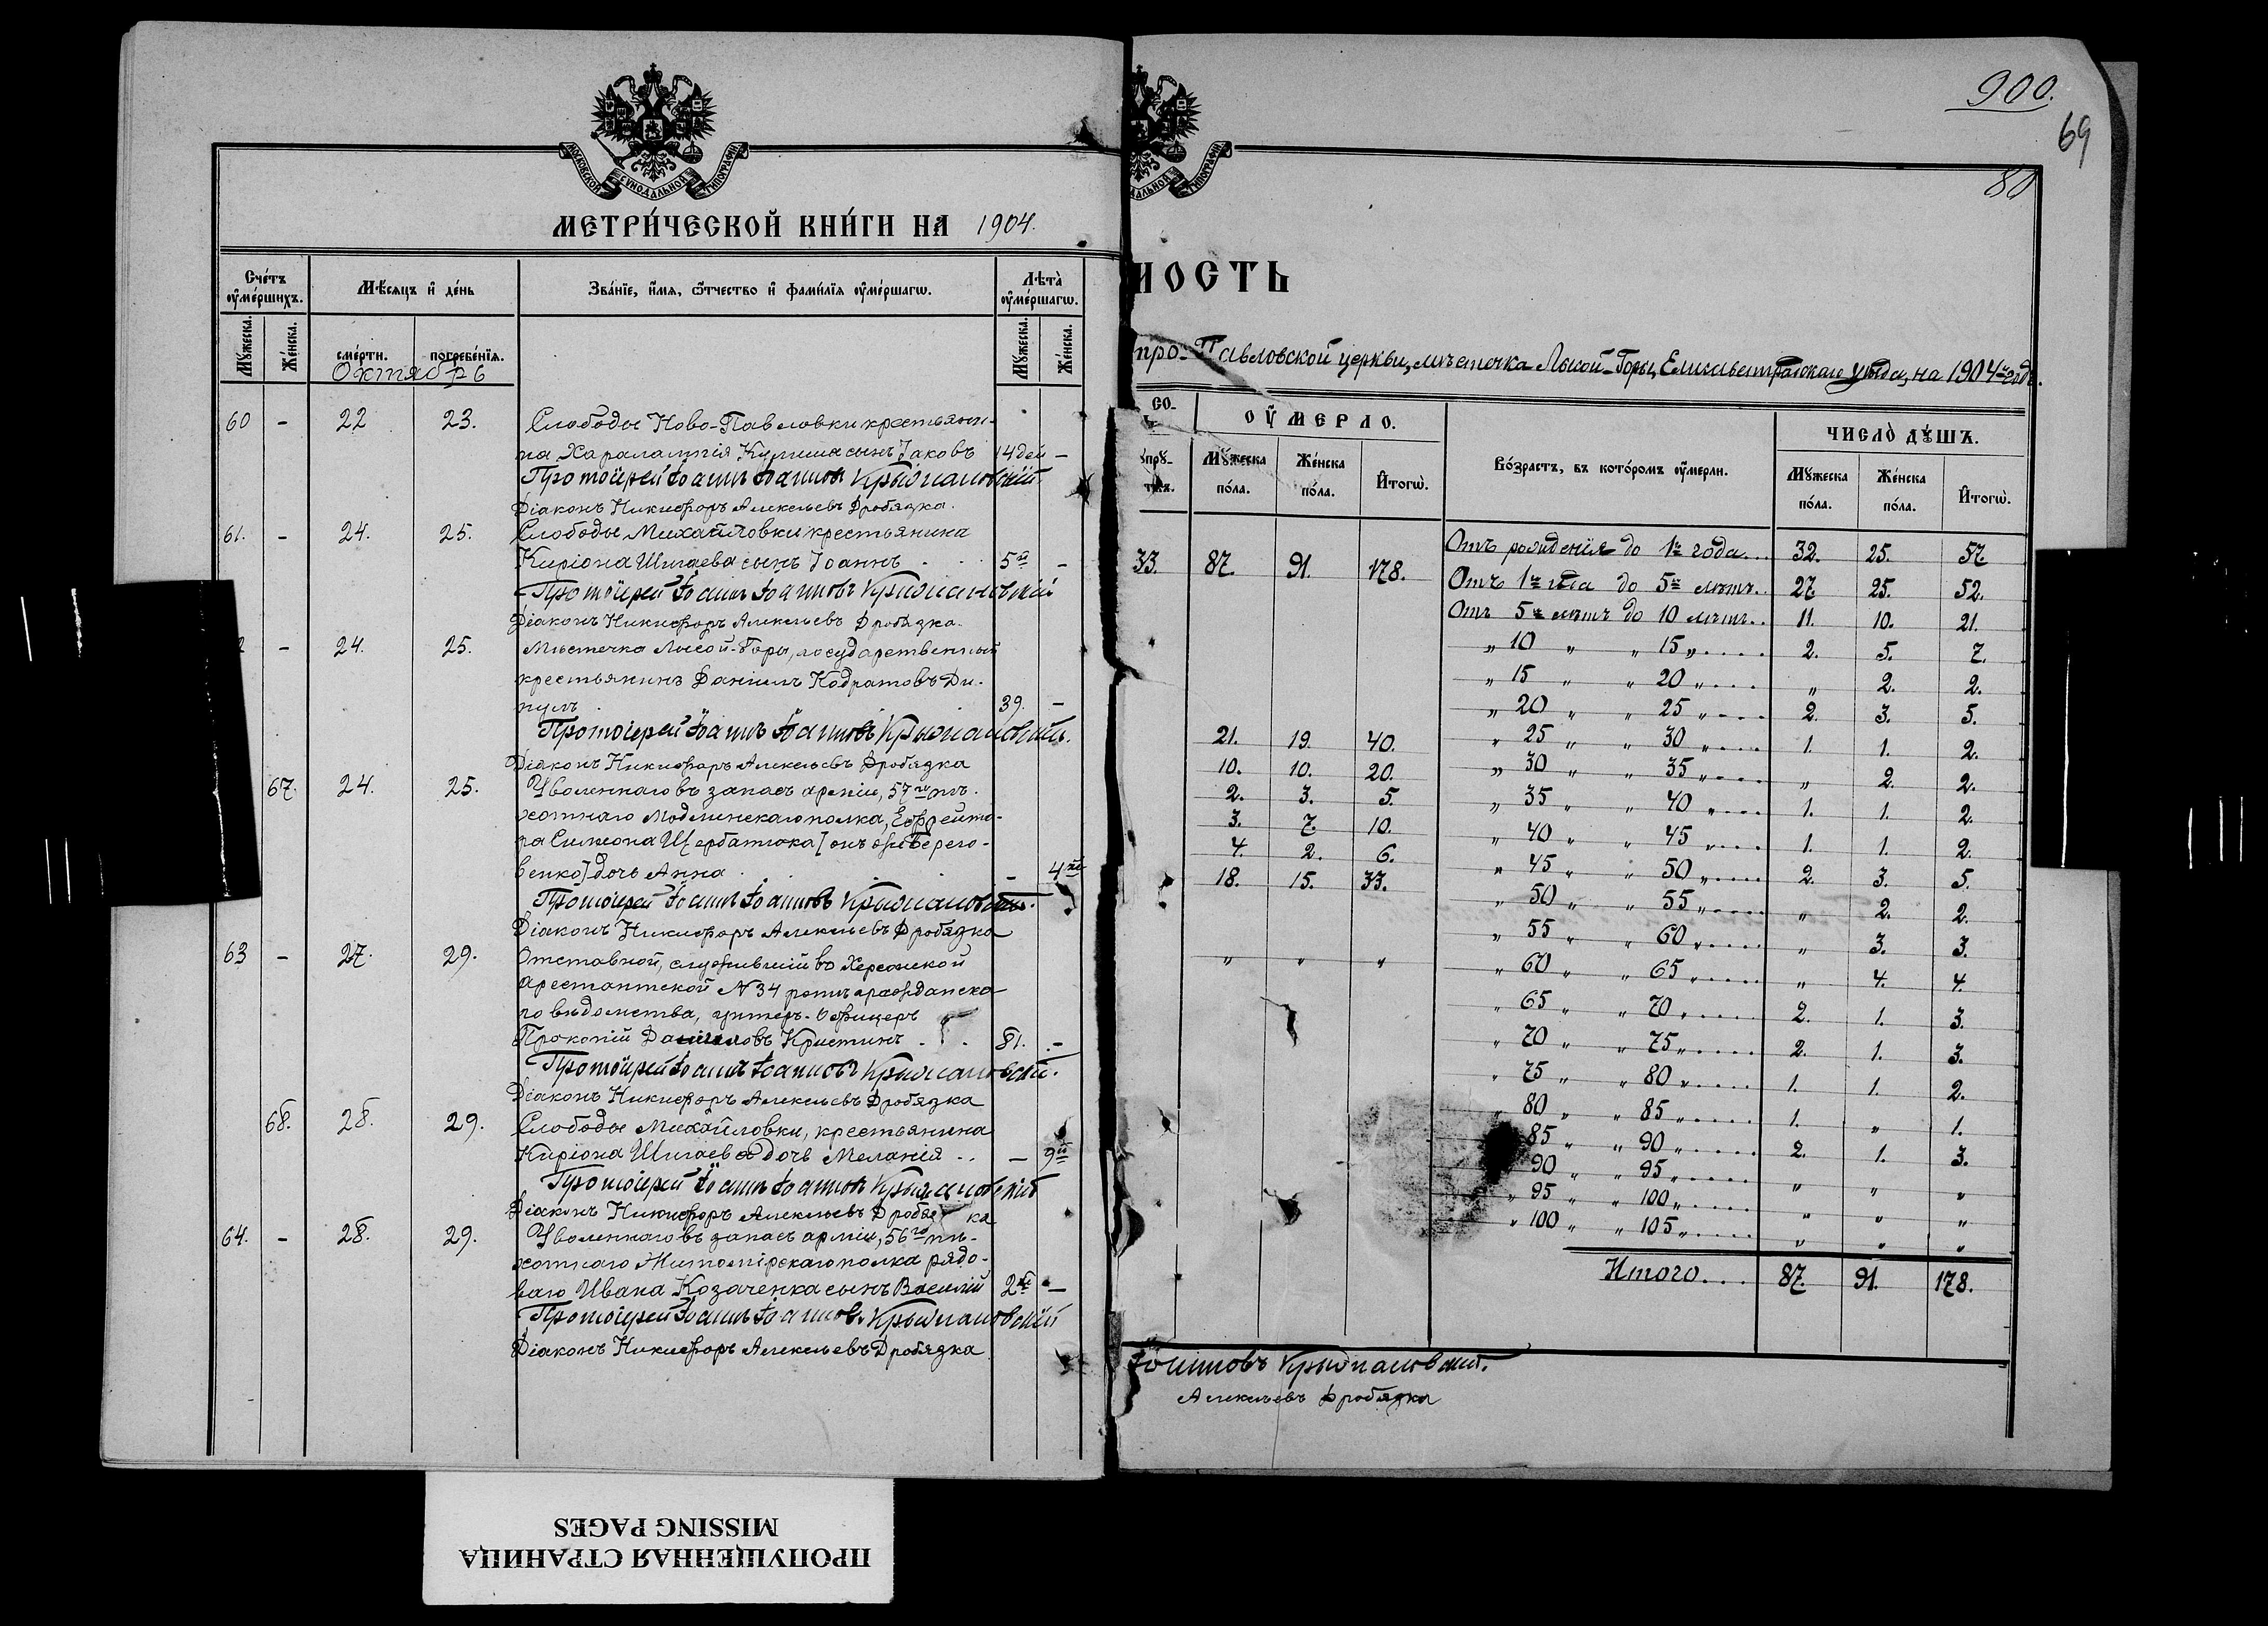 МОСКОВСКОЙ СУНОДАЛЬНОЙ ТИПОГРАФІИ
МЕТРИЧЕСКОЙ КНИГИ НА 1904.
Счетъ оумершихъ.
Мѣсяцъ и день
Званіе, имя, отчество и фамилія оумершагѡ.
Лѣта оумершагѡ.
Мꙋжеска. Женска. смерти. погребенія. Мꙋжеска. Женска.
Октябрь
60 - 22 23. Слободы Ново-Павловки крестьяни-
на Харалампія сынъ Іаковъ 14 дей -
Протоіерей Іоаннъ Іоанновъ Крыжановскій
Діаконъ Никифоръ Алексѣевъ Дробязка.
61. - 24. 25. Слободы Михайловки крестьянина
Киріона Шигаева сынъ Іоаннъ 5 -
Протоіерей Іоаннъ Іоанновъ Крыжановскій
Діаконъ Никифоръ Алексѣевъ Дробязка.
2 - 24. 25. Мѣстечка Лысой-Горы, государственный
крестьянинъ Даніилъ Кодратовъ Ди-
39. -
Протоіерей Іоаннъ Іоанновъ Крыжановскій.
Діаконъ Никифоръ Алексѣевъ Дробязка
67. 24. 25. Уволеннаго въ запасъ арміи, 57го пѣ-
хотнаго Модлинскаго полка, Ефрейто-
ра Симеона Щербатюка [онъ же Берего-
венко] дочь Анна - 4
Протоіерей Іоаннъ Іоанновъ Крыжановскій.
Діаконъ Никифоръ Алексѣевъ Дробязка
63 - 27. 29. Отставной, служившій въ Херсонской
арестантской № 34 ротѣ гражданска-
го вѣдомства, унтеръ-офицеръ
Прокопій Даніиловъ Кристинъ 81. -
Протоіерей Іоаннъ Іоанновъ Крыжановскій.
Діаконъ Никифоръ Алексѣевъ Дробязка
68. 28. 29. Слободы Михайловки, крестьянина
Киріона Шигаева дочь Меланія - 9
Протоіерей Іоаннъ Іоанновъ Крыжановскій
Діаконъ Никифоръ Алексѣевъ Дробязка
64. - 28. 29. Уволеннаго въ запасъ арміи, 56го пѣ-
хотнаго Житомірскаго полка рядо-
ваго Ивана Козаченка сынъ Василій 2 -
Протоіерей Іоаннъ Іоанновъ Крыжановскій
Діаконъ Никифоръ Алексѣевъ Дробязка
ПРОПУЩЕННАЯ СТРАНИЦА
MISSING PAGES
900.
69
80
ДАЛЬНОЙ ТИПОГРАФІИ
НОСТЬ
про-Павловской церкви, мѣстечка Лысой-Горы, Елисаветградскаго уѣзда, на 1904й годъ.
СО-
ОУМЕРЛО.
Возрастъ, въ которомъ оумерли.
ЧИСЛО ДꙊШЪ.
Мꙋжеска пола. Женска пола. Итогѡ.
Мꙋжеска пола. Женска пола. Итогѡ.
33. 87. 91. 178. Отъ рожденія до 1го года... 32. 25. 57.
Отъ 1го года до 5ти лѣтъ.. 27. 25. 52.
Отъ 5ти лѣтъ до 10 лѣтъ.. 11. 10. 21.
„ 10 „ „ 15 „ .... 2. 5. 7.
„ 15 „ „ 20 „ .... „ 2. 2.
„ 20 „ „ 25 „ .... 2. 3. 5.
21. 19. 40. „ 25 „ „ 30 „ .... 1. 1. 2.
10. 10. 20. „ 30 „ „ 35 „ .... „ 2. 2.
2. 3. 5. „ 35 „ „ 40 „ .... 1. 1. 2.
3. 7. 10. „ 40 „ „ 45 „ .... 1. 1. 2.
4. 2. 6. „ 45 „ „ 50 „ .... 2. 3. 5.
18. 15. 33. „ 50 „ „ 55 „ .... „ 2. 2.
„ 55 „ „ 60 „ .... „ 3. 3.
„ „ „ „ 60 „ „ 65 „ .... „ 4. 4.
„ 65 „ „ 70 „ .... 2. 1. 3.
„ 70 „ „ 75 „ .... 2. 1. 3.
„ 75 „ „ 80 „ .... 1. 1. 2.
„ 80 „ „ 85 „ .... 1. „ 1.
85 „ „ 90 „ .... 2. 1. 3.
90 „ „ 95 „ .... „ „ „
„ 95 „ „ 100 „ .... „ „ „
„ 100 „ „ 105 „ .... „ „ „
Итого.... 87. 91. 178.
Іоанновъ Крыжановскій.
Алексѣевъ Дробязка